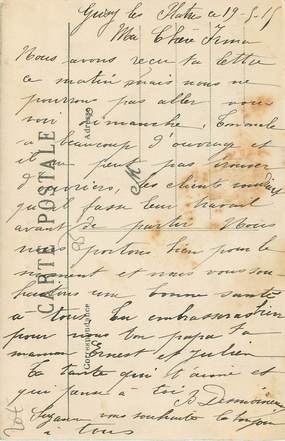 Grisy les Plâtres ce 19-5-15
Ma Chère Irma
Nous avons reçu ta lettre
ce matin mais nous ne
pourrons pas aller vous
voir dimanche, Ton oncle
a beaucoup d'ouvrage et
il ne peut pas trouver
d'ouvriers, les clients
qu'il fasse leur travail
avant de partir Nous
nous portons bien pour le
moment et nous vous sou
haitons une bonne santé
à tous. Tu embrasseras bien
pour nous ton papa ta
maman Ernest et Julien
Ta tante qui t'aime et
qui pense à toi
Suzanne vous souhaite le bonjour
à tous
CARTE POSTALE
Correspondance
Adresse
M